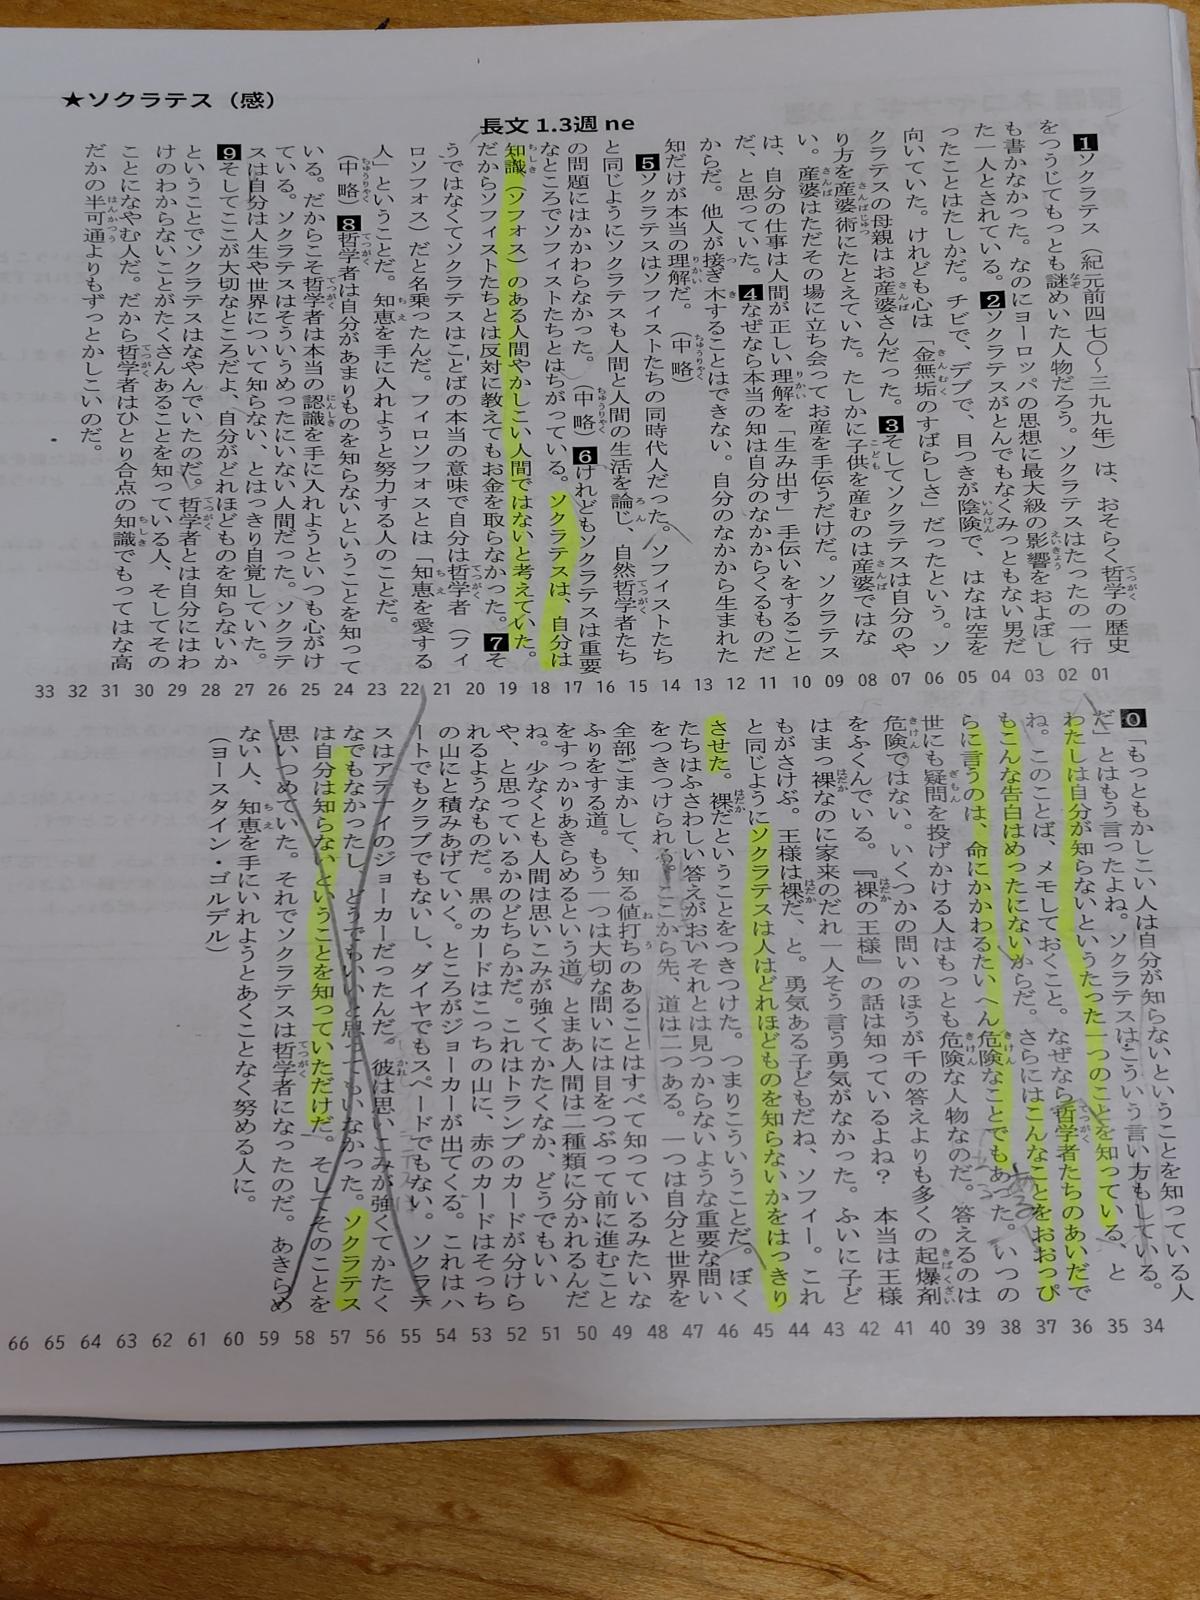 ★ソクラテス（感）
長文 1.3週 ne
1ソクラテス（紀元前四七〇～三九九年）は、おそらく哲学の歴史
をつうじてもっとも謎めいた人物だろう。ソクラテスはたったの一行
も書かなかった。なのにヨーロッパの思想に最大級の影響をおよぼし
た一人とされている。2ソクラテスがとんでもなくみっともない男だ
ったことはたしかだ。チビで、デブで、目つきが陰険で、はなは空を
向いていた。けれども心は「金無垢のすばらしさ」だったという。ソ
クラテスの母親はお産婆さんだった。3そしてソクラテスは自分のや
り方を産婆術にたとえていた。たしかに子供を産むのは産婆ではな
い。産婆はただその場に立ち会ってお産を手伝うだけだ。ソクラテス
は、自分の仕事は人間が正しい理解を「生み出す」手伝いをすること
だ、と思っていた。4なぜなら本当の知は自分のなかからくるものだ
からだ。他人が接ぎ木することはできない。自分のなかから生まれた
知だけが本当の理解だ。（中略）
5ソクラテスはソフィストたちの同時代人だった。ソフィストたち
と同じようにソクラテスも人間と人間の生活を論じ、自然哲学者たち
の問題にはかかわらなかった。（中略）6けれどもソクラテスは重要
なところでソフィストたちとはちがっている。ソクラテスは、自分は
知識（ソフォス）のある人間やかしこい人間ではないと考えていた。
だからソフィストたちとは反対に教えてもお金を取らなかった。7そ
うではなくてソクラテスはことばの本当の意味で自分は哲学者（フィ
ロソフォス）だと名乗ったんだ。フィロソフォスとは「知恵を愛する
人」ということだ。知恵を手に入れようと努力する人のことだ。
（中略）8哲学者は自分があまりものを知らないということを知って
いる。だからこそ哲学者は本当の認識を手に入れようといつも心がけ
ている。ソクラテスはそういうめったにいない人間だった。ソクラテ
スは自分は人生や世界について知らない、とはっきり自覚していた。
9そしてここが大切なところだよ、自分がどれほどものを知らないか
ということでソクラテスはなやんでいたのだ。哲学者とは自分にはわ
けのわからないことがたくさんあることを知っている人、そしてその
ことになやむ人だ。だから哲学者はひとり合点の知識でもってはな高
だかの半可通よりもずっとかしこいのだ。
01 02 03 04 05 06 07 08 09 10 11 12 13 14 15 16 17 18 19 20 21 22 23 24 25 26 27 28 29 30 31 32 33
0「もっともかしこい人は自分が知らないということを知っている人
だ」とはもう言ったよね。ソクラテスはこういう言い方もしている。
わたしは自分が知らないというたった一つのことを知っている、と
ね。このことば、メモしておくこと。なぜなら哲学者たちのあいだで
もこんな告白はめったにないからだ。さらにはこんなことをおおっぴ
らに言うのは、命にかかわるたいへん危険なことでもあった。いつの
世にも疑問を投げかける人はもっとも危険な人物なのだ。答えるのは
危険ではない。いくつかの問いのほうが千の答えよりも多くの起爆剤
をふくんでいる。『裸の王様』の話は知っているよね？　本当は王様
はまっ裸なのに家来のだれ一人そう言う勇気がなかった。ふいに子ど
もがさけぶ。王様は裸だ、と。勇気ある子どもだね、ソフィー。これ
と同じようにソクラテスは人はどれほどものを知らないかをはっきり
させた。裸だということをつきつけた。つまりこういうことだ。ぼく
たちはふさわしい答えがおいそれとは見つからないような重要な問い
をつきつけられる。ここから先、道は二つある。一つは自分と世界を
全部ごまかして、知る値打ちのあることはすべて知っているみたいな
ふりをする道。もう一つは大切な問いには目をつぶって前に進むこと
をすっかりあきらめるという道。とまあ人間は二種類に分かれるんだ
ね。少なくとも人間は思いこみが強くてかたくなか、どうでもいい
や、と思っているかのどちらかだ。これはトランプのカードが分けら
れるようなものだ。黒のカードはこっちの山に、赤のカードはそっち
の山にと積みあげていく。ところがジョーカーが出てくる。これはハ
ートでもクラブでもないし、ダイヤでもスペードでもない。ソクラテ
スはアテナイのジョーカーだったんだ。彼は思いこみが強くてかたく
なでもなかったし、どうでもいいと思ってもいなかった。ソクラテス
は自分は知らないということを知っていただけだ。そしてそのことを
思いつめていた。それでソクラテスは哲学者になったのだ。あきらめ
ない人、知恵を手にいれようとあくことなく努める人に。
（ヨースタイン・ゴルデル）
34 35 36 37 38 39 40 41 42 43 44 45 46 47 48 49 50 51 52 53 54 55 56 57 58 59 60 61 62 63 64 65 66